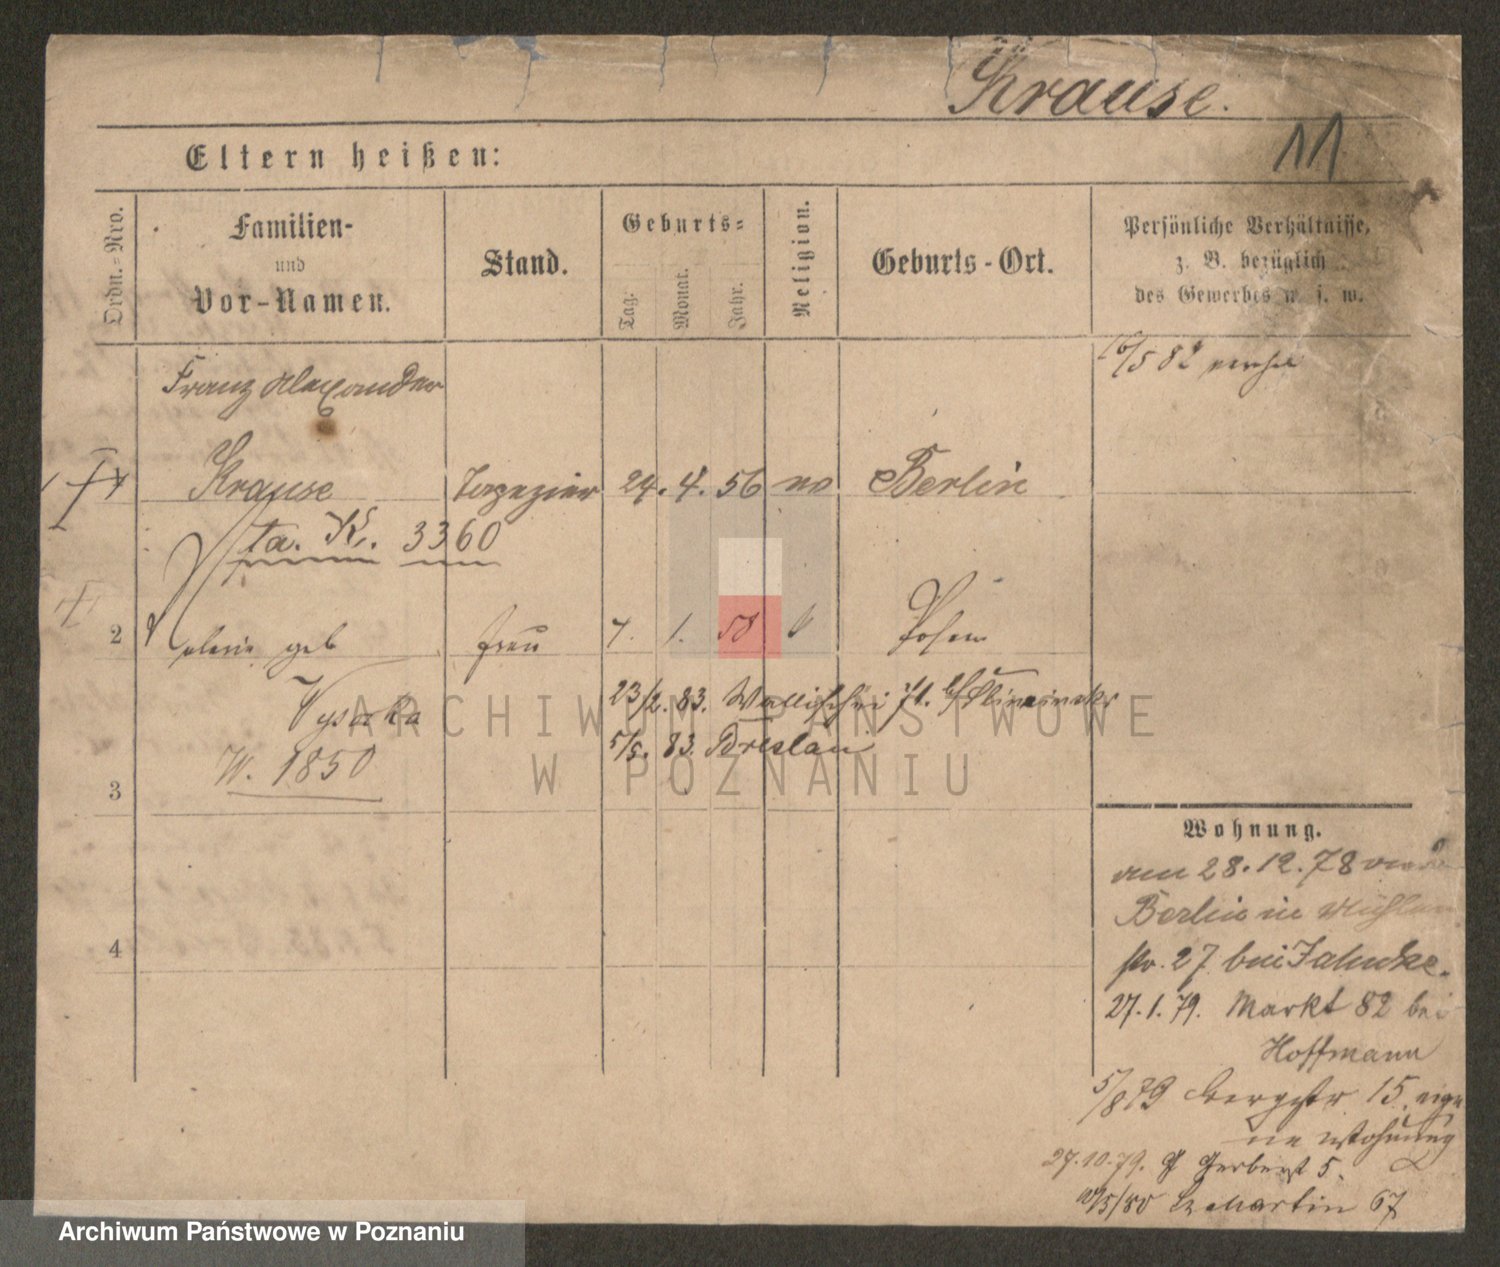 Krause.
11
Eltern heißen:
Ordn.=Nro.
Familien-
und
Vor-Namen.
Stand.
Geburts=
Tag.
Monat.
Jahr.
Religion.
Geburts-Ort.
Persönliche Verhältnisse,
z. B. bezüglich
des Gewerbes u. s. w.
Franz Alexander
Krause Tapezier 24. 4. 56 Berlin
Sta. K. 3360
2 geb frau 7. 1. 58 Posen
Wysocka 23/2. 83. Wallischei 71.
W. 1850 5/5. 83. Breslau
3
4
Wohnung.
am 28.12.78 von
Berlin in Mühlen
str. 27 bei Jahnke.
27.1.79. Markt 82 bei
Hoffmann
5/8 79 Bergstr 15. eige
ne Wohnung
27.10.79. Gr Gerberst 5.
St Martin 67
ARCHIWUM PAŃSTWOWE
W POZNANIU
Archiwum Państwowe w Poznaniu